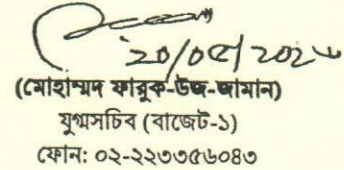 (মোহাম্মদ ফারুক-উজ-জামান)
যুগ্মসচিব (বাজেট-১)
ফোন: ০২-২২৩৩৫৬০৪৩